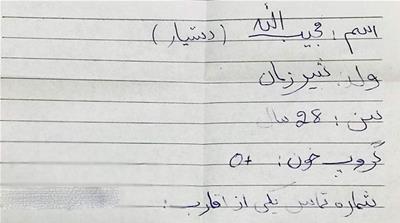 اسم: مجیب الله (دستیار)
ولد: شیرزمان
سن: 28 سال
گروپ خون: +O
شماره تماس یکی از اقارب: